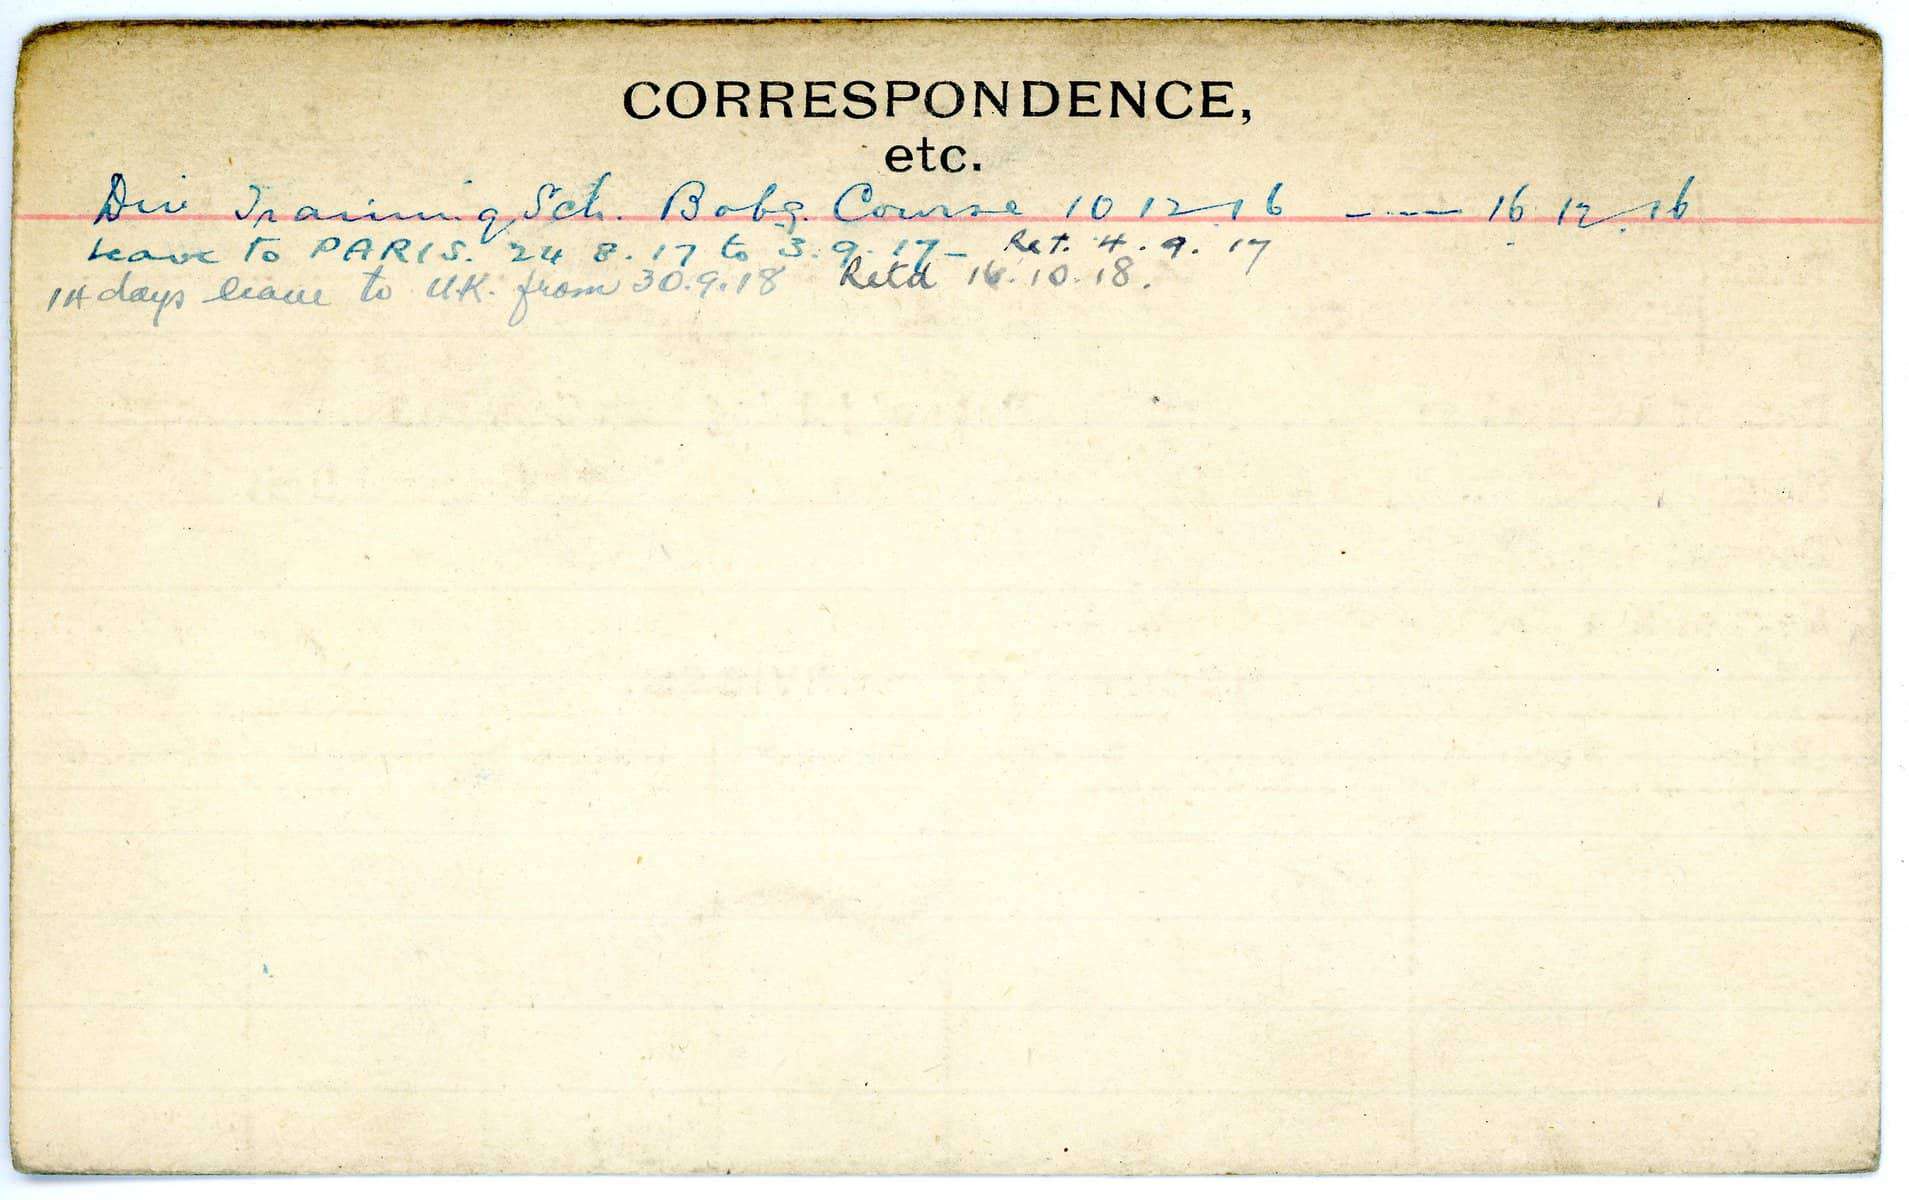 CORRESPONDENCE,
etc.
Div Training Sch. Bobg. Course 10 12 16 — - — 16 12 16
Leave to PARIS. 24 8. 17 to 3. 9. 17 - Ret. 4. 9. 17
14 days leave to U.K. from 30.9.18 Retd 16.10.18.